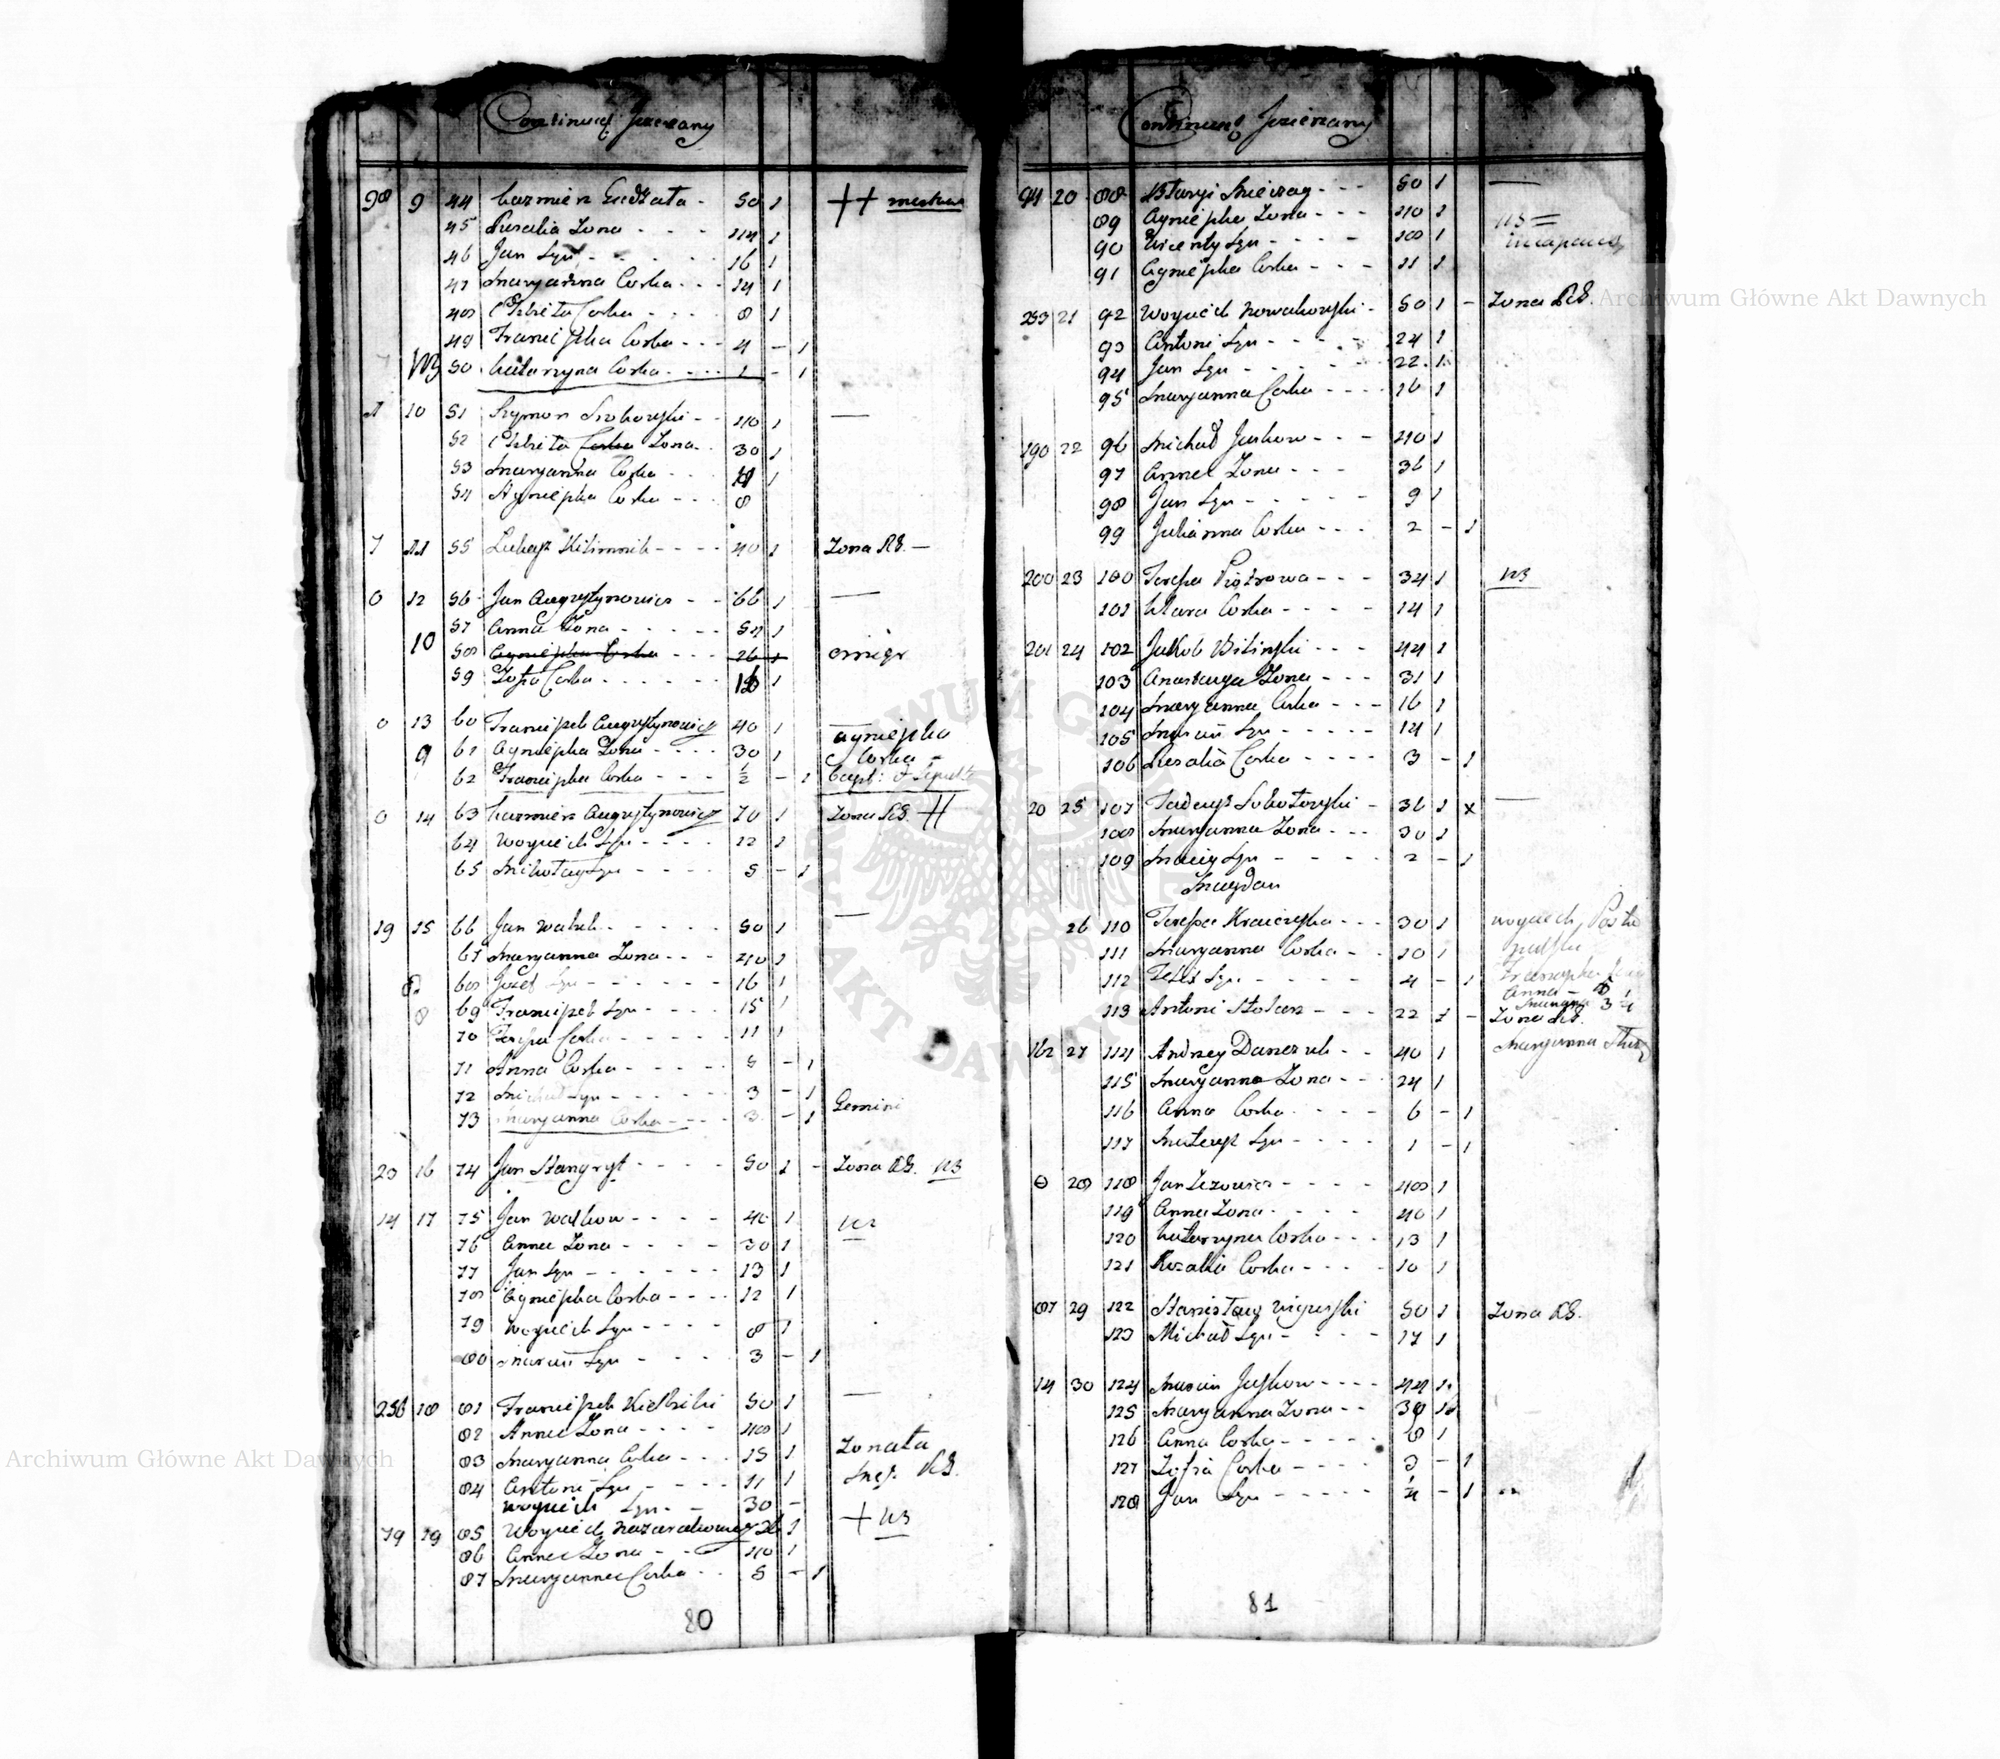 Continuą Jezierzany
98 9 44 Kazmierz Gudzała - 50 1 ++
45 Rosalia Zona - - - 44 1
46 Jan Syn - - - 16 1
47 Maryanna Corka - - - 14 1
48 Elzbieta Corka - - - 8 1
49 Franciszka Corka - - - 4 - 1
NB 50 Katarzyna Corka - - - 1 - 1
1 10 51 Szymon - - 40 1 —
52 Elzbieta Corka Zona - 30 1
53 Maryanna Corka - - - 1
54 Agnieszka Corka - - - 8
7 11 55 Lukasz Kilimnik - - - - 40 1 Zona RG. —
0 12 56 Jan Augustynowicz - - 66 1 —
57 Anna Zona - - - - 54 1
10 58 Agnieszka Corka - - - 26 1
59 Zofia Corka - - - - - 1
0 13 60 Franciszek Augustynowicz 40 1 Agnieszka
9 61 Agnieszka Zona - - - - 30 1 Corka
62 Franciszka Corka - - - 1/2 - 1
0 14 63 Kazmierz Augustynowicz 70 1 Zona RG. ++
64 Woyciech Syn - - - - 12 1
65 Mikołay Syn - - - - 5 - 1
19 15 66 Jan - - - - - 50 1 —
67 Maryanna Zona - - - 40 1
68 Jozef Syn - - - - - - 16 1
8 69 Franciszek Syn - - - - 15 1
70 Teresa Corka - - - - - 11 1
71 Anna Corka - - - - - 5 - 1
72 Michał Syn - - - - - 3 - 1
73 Maryanna Corka - - - 3 - 1 Gemini
23 16 74 Jan Stangryt - - - - 50 1 - Zona RG. NB
14 17 75 Jan Walkow - - - - 40 1
76 Anna Zona - - - - 30 1
77 Jan Syn - - - - - 13 1
78 Agnieszka Corka - - - - 12 1
79 Woyciech Syn - - - - 8 1
80 Marcin Syn - - - - 3 - 1
256 18 81 Franciszek 50 1 —
82 Anna Zona - - - - 48 1
83 Maryanna Corka - - - 15 1 Zonata
84 Antoni Syn - - - - 11 1 RG.
Woyciech Syn - - 30 -
79 19 85 Woyciech 1 + NB
86 Anna Zona - - 40 1
87 Maryanna Corka - - 5 - 1
80
Continuą Jezierzany
20 88 - - - 50 1 —
89 Agnieszka Zona - - - 40 1 NB =
90 Wicenty Syn - - - - 18 1
91 Agnieszka Corka - - - 11 1
253 21 92 Woyciech Nowakowski - 50 1 - Zona RG.
93 Antoni Syn - - - - 24 1
94 Jan Syn - - - - 22 1
95 Maryanna Corka - - - - 16 1
190 22 96 Michał Juskow - - - 40 1
97 Anna Zona - - - 36 1
98 Jan Syn - - - - - 9 1
99 Julianna Corka - - - 2 - 1
200 23 100 Teresa Piotrowa - - - 34 1 NB
101 Klara Corka - - - - 14 1
201 24 102 Jakob Bilinski - - - 44 1
103 Anastazya Zona - - - 31 1
104 Maryanna Corka - - - 16 1
105 Marcin Syn - - - - - 14 1
106 Rosalia Corka - - - - 3 - 1
20 25 107 Tadeusz Sokołowski - 36 1 x —
108 Maryanna Zona - - - 30 1
109 Maciey Syn - - - - 2 - 1
Magdan
26 110 Teresa Krawczycka - - - 30 1 Woyciech
111 Maryanna Corka - 10 1
112 Felix Syn - - - - - 4 - 1 Franciszka
Anna - 8
Maryanna 3 1/4
113 Antoni Stolarz - - - 22 1 - Zona RG.
162 27 114 Andrzey Danczuk - - 40 1 Maryanna
115 Maryanna Zona - - - 24 1
116 Anna Corka - - - - 6 - 1
117 Mateusz Syn - - - - 1 - 1
0 28 118 Jan Lezowicz - - - - 48 1
119 Anna Zona - - - - 40 1
120 Katarzyna Corka - - - 13 1
121 Rozalia Corka - - - - 10 1
87 29 122 Stanisław 50 1 Zona RG.
123 Michał Syn - - - - 17 1
14 30 124 Marcin Juskow - - - - 44 1
125 Maryanna Zona - - 1
126 Anna Corka - - - - - 8 1
127 Zofia Corka - - - - 3 - 1
128 Jan Syn - - - - - 1/4 - 1
81
Archiwum Główne Akt Dawnych
Archiwum Główne Akt Dawnych